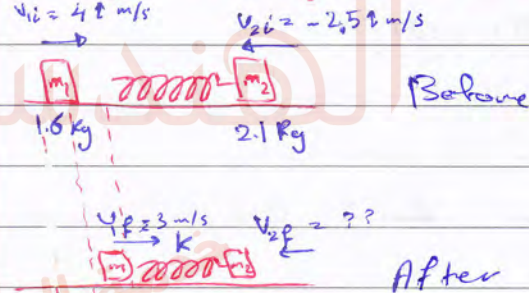 v₁ᵢ = 4 î m/s
v₂ᵢ = -2.5 î m/s
m₁
m₂
Before
1.6 kg
2.1 Kg
v₁f = 3 m/s
v₂f = ??
k
m₁
m₂
After